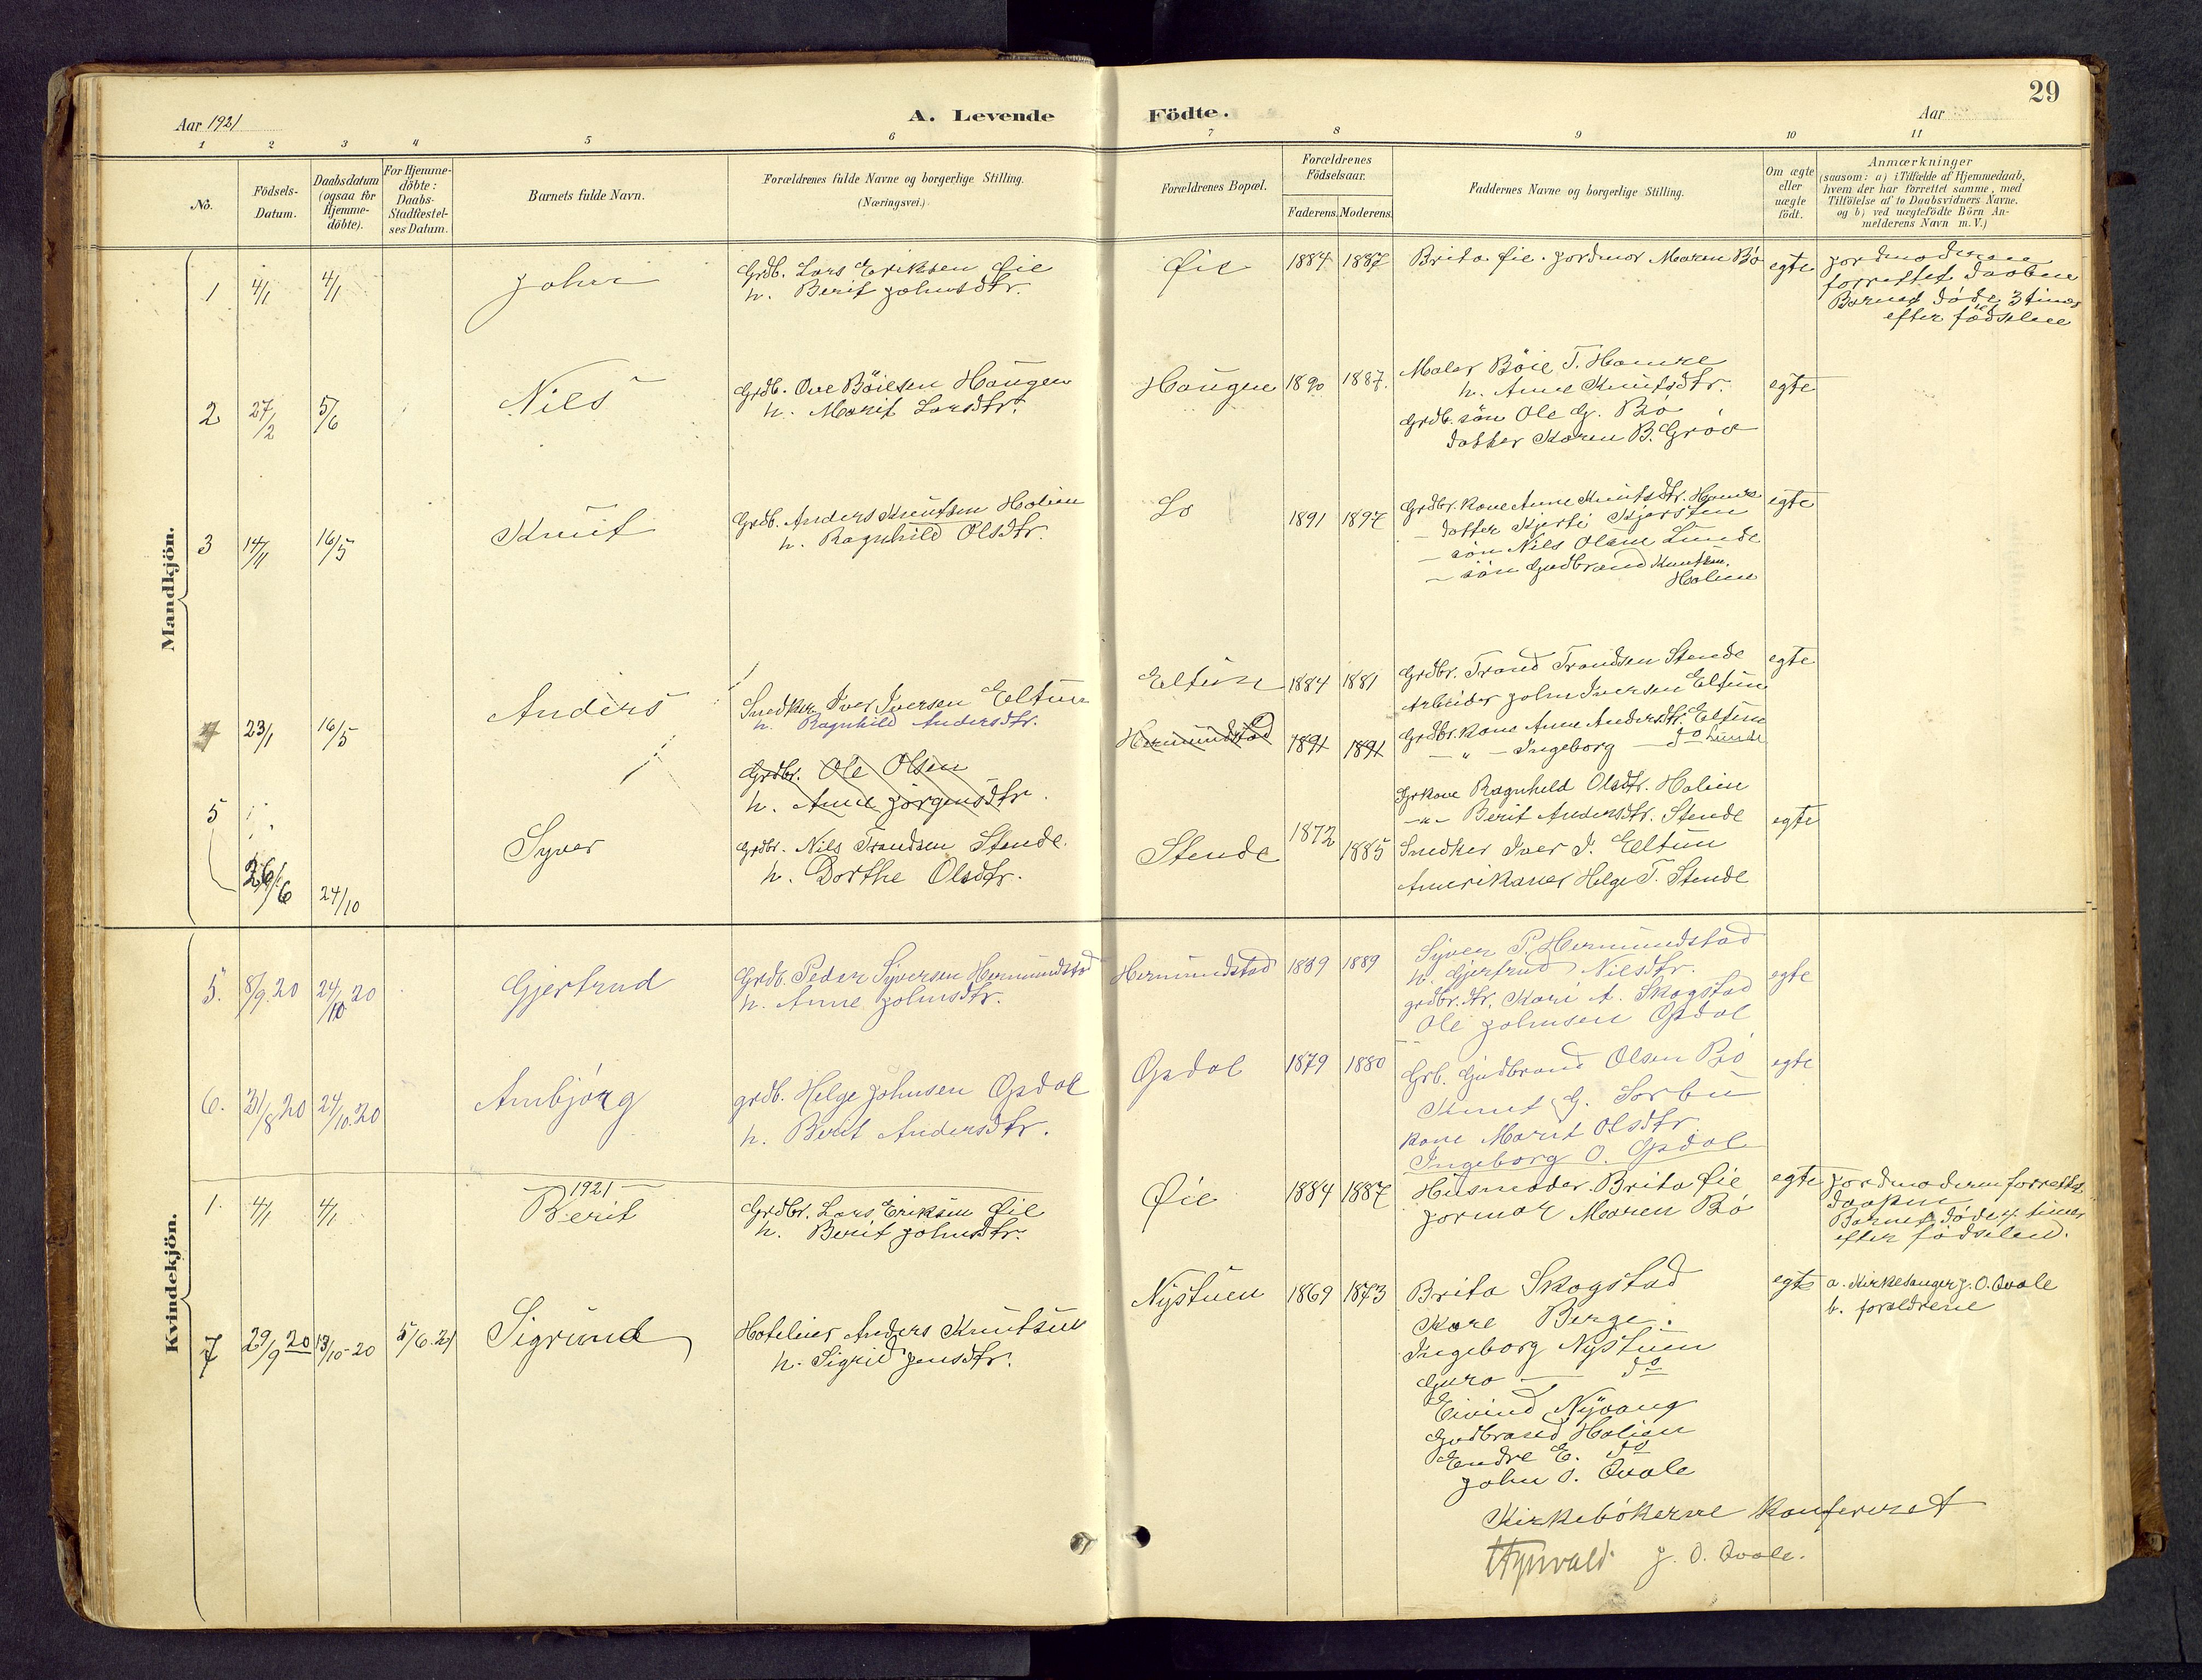 29
Aar 1921
A. Levende Födte.
Aar
1 2 3 4 5 6 7 8 9 10 11
No.
Födsels-
Datum.
Daabsdatum
(ogsaa for
Hjemme-
döbte).
For Hjemme-
döbte:
Daabs-
Stadfæstel-
ses Datum.
Barnets fulde Navn.
Forældrenes fulde Navne og borgerlige Stilling.
(Næringsvei.)
Forældrenes Bopæl.
Forældrenes
Födselsaar.
Faderens. Moderens.
Faddernes Navne og borgerlige Stilling.
Om ægte
eller
uægte
födt.
Anmærkninger
(saasom: a) i Tilfælde af Hjemmedaab,
hvem der har forrettet samme, med
Tilföielse af to Daabsvidners Navne.
og b) ved uægtefödte Börn An-
melderens Navn m.V.)
Mandkjön.
1 4/1 4/1 John
Grdb. Lars Eriksen Øie
h. Berit Johnsdtr.
Øie 1884 1887
Brita Øie. Jordmor Maren Bö
egte
Jordmoderen
forrettet daaben
Barnet döde 3 timer
efter födselen
2 27/2 5/6 Nils
Grdb. Ove Böiesen Haugen
h. Marit Larsdtr.
Haugen 1890 1887.
Maler Böie T. Hamre
h. Anne Knutsdtr.
Grdb. sön Ole G. Bö
datter Karen B. Gröv
egte
3 14/11 16/5 Knut
Grdb. Anders Knutsen Holien
h. Ragnhild Olsdtr.
Lo 1891 1897
Grdbr. Kone Anne Knutsdtr. Hamre
- datter Kjersti Kjersten
- sön Nils Olsen Lunde
- sön Gudbrand Knutsen.
Holien
egte
4 23/1 16/5 Anders
Snedker Iver Iversen Eltun
h. Ragnhild Andersdtr.
Eltun 1884 1881
Grdbr. Trond Trondsen Stende
Arbeider John Iversen Eltun
Grdbr. kone Anne Andersdtr. Eltun
- " - Ingeborg - do Lunde
egte
Grdbr. Ole Olsen
h. Anne Jörgensdtr.
Hermundstad 1891 1891
5 26/6 24/10 Syver
Grdbr. Nils Trondsen Stende.
h. Dorthe Olsdtr.
Stende 1872 1885
Grkone Ragnhild Olsdtr. Holien
-"- Berit Andersdtr. Stende
Snedker Iver I. Eltun
Amerikaner Helge T. Stende
egte
Kvindekjön.
5. 8/9.20 24/10 20 Gjertrud
Grdb. Peder Syversen Hermundstad
h. Anne Johnsdtr.
Hermundstad 1889 1889
Syver P. Hermundstad
h. Gjertrud Nilsdtr.
grdbr. dtr. Kari A. Skogstad
Ole Johnsen Opdal
egte
6. 31/8 20 24/10.20 Ambjörg
grdb. Helge Johnsen Opdal
h. Berit Andersdtr.
Opdal 1879 1880
Grb. Gudbrand Olsen Bö
Knut G. Sörbu
kone Marit Olsdtr.
Ingeborg O. Opdal
egte
1921
1. 4/1 4/1 Berit
Grdbr. Lars Eriksen Øie
h. Berit Johnsdtr.
Øie 1884 1887
Husmoder Brita Øie
Jormor Maren Bö
egte
Jordmoderen forrettet
daaben
Barnet döde 4 timer
efter födselen.
7 29/9 20 13/10-20 5/6.21 Sigrund
Hoteleier Anders Knutsen
h. Sigrid Jensdtr.
Nystuen 1869 1873
Brita Skogstad
Kare Berge.
Ingeborg Nystuen
Guro - do
Eivind Nyvang
Gudbrand Holien
Endre E. do
John O. Qvale
egte
a. Kirkesanger J. O. Qvale
b. foreldrene
Kirkebökerne konferert
J. O. Qvale.